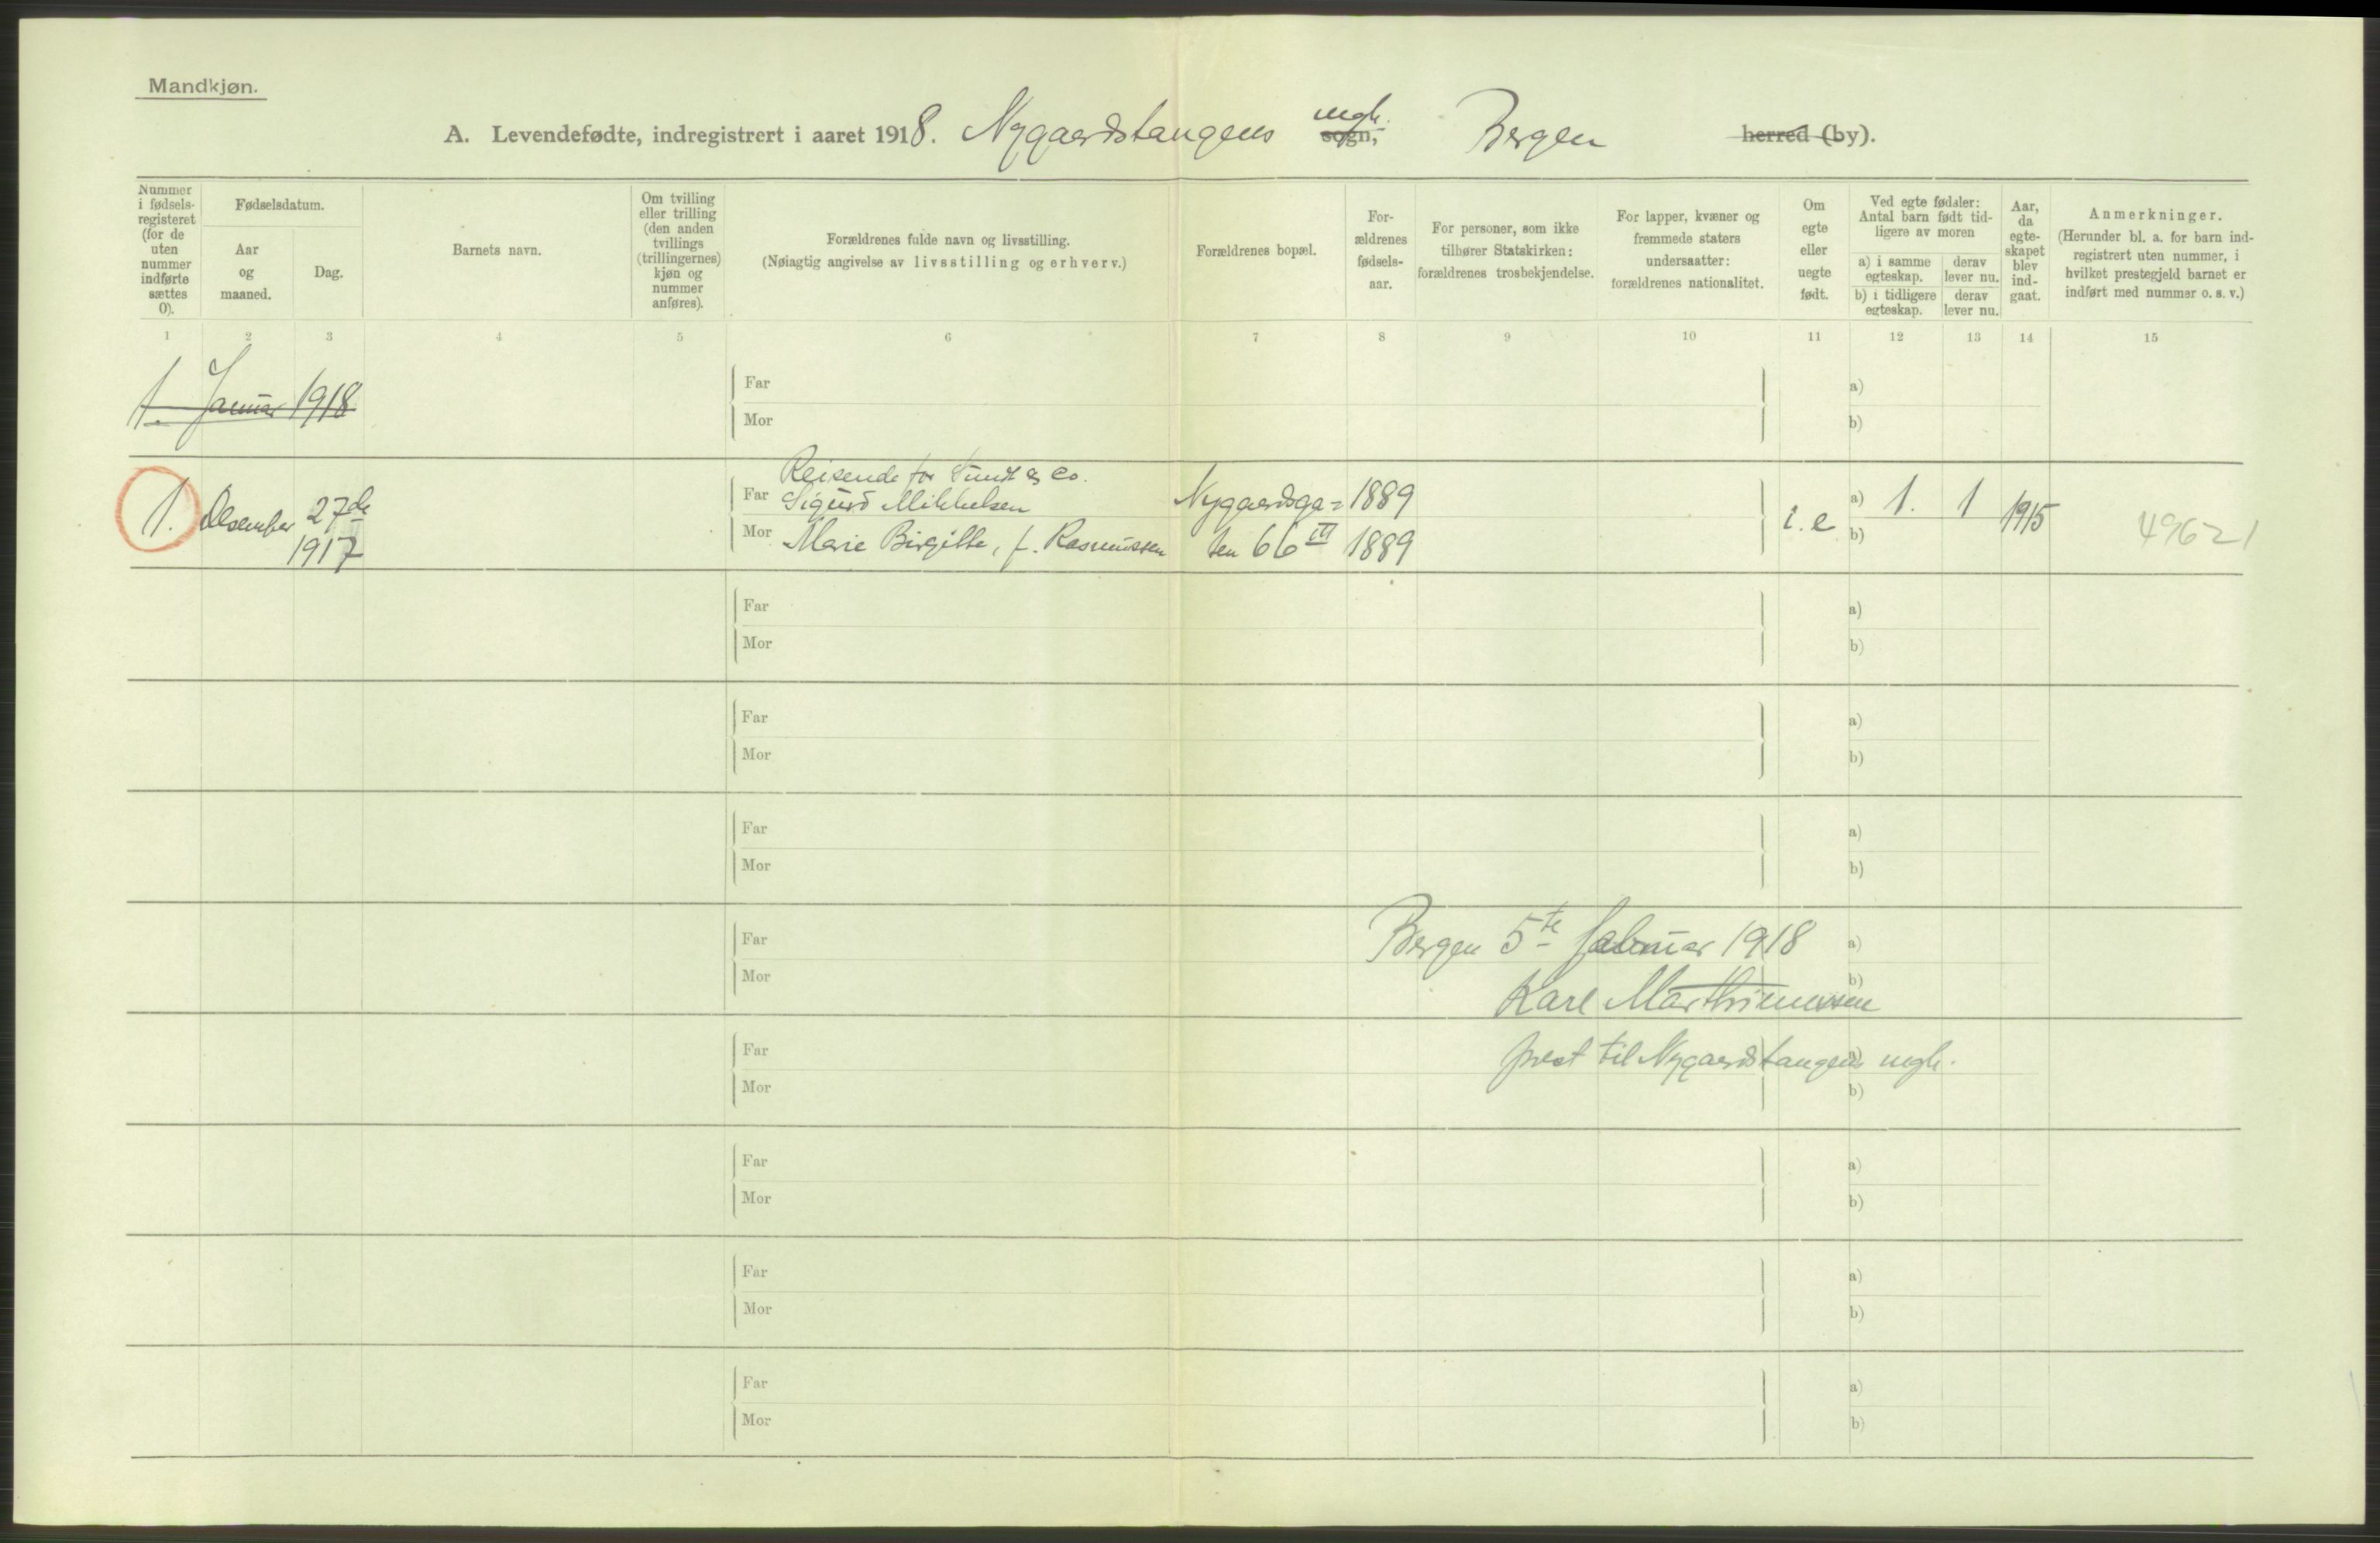 Mandkjøn.
A. Levendefødte, indregistrert i aaret 1918. Nygaardstangens sogn, mgh. Bergen herred (by).
Nummer i fødsels-registeret (for de uten nummer indførte sættes 0).
Fødselsdatum.
Aar og maaned.
Dag.
Barnets navn.
Om tvilling eller trilling (den anden tvillings (trillingernes) kjøn og nummer anføres).
Forældrenes fulde navn og livsstilling.
(Nøiagtig angivelse av livsstilling og erhverv.)
Forældrenes bopæl.
For-ældrenes fødsels-aar.
For personer, som ikke tilhører Statskirken: forældrenes trosbekjendelse.
For lapper, kvæner og fremmede staters undersaatter: forældrenes nationalitet.
Om egte eller uegte født.
Ved egte fødsler: Antal barn født tid-ligere av moren
a) i samme egteskap. derav lever nu.
b) i tidligere egteskap. derav lever nu.
Aar, da egte-skapet blev ind-gaat.
Anmerkninger.
(Herunder bl. a. for barn ind-registrert uten nummer, i hvilket prestegjeld barnet er indført med nummer o. s. v.)
1 2 3 4 5 6 7 8 9 10 11 12 13 14 15
1. Januar 1918
Far a)
Mor b)
Reisende for Sundt & Co.
1. Desember 27de Far Sigurd Mikkelsen Nygaardsga= 1889 i.e a) 1. 1 1915 49621
1917 Mor Marie Birgitte, f. Rasmussen ten 66 III 1889 b)
Far a)
Mor b)
Far a)
Mor b)
Far a)
Mor b)
Far Bergen 5te februar 1918 a)
Mor b)
Karl Marthinussen
Far prest til Nygaardstangens mgh. a)
Mor b)
Far a)
Mor b)
Far a)
Mor b)
Far a)
Mor b)